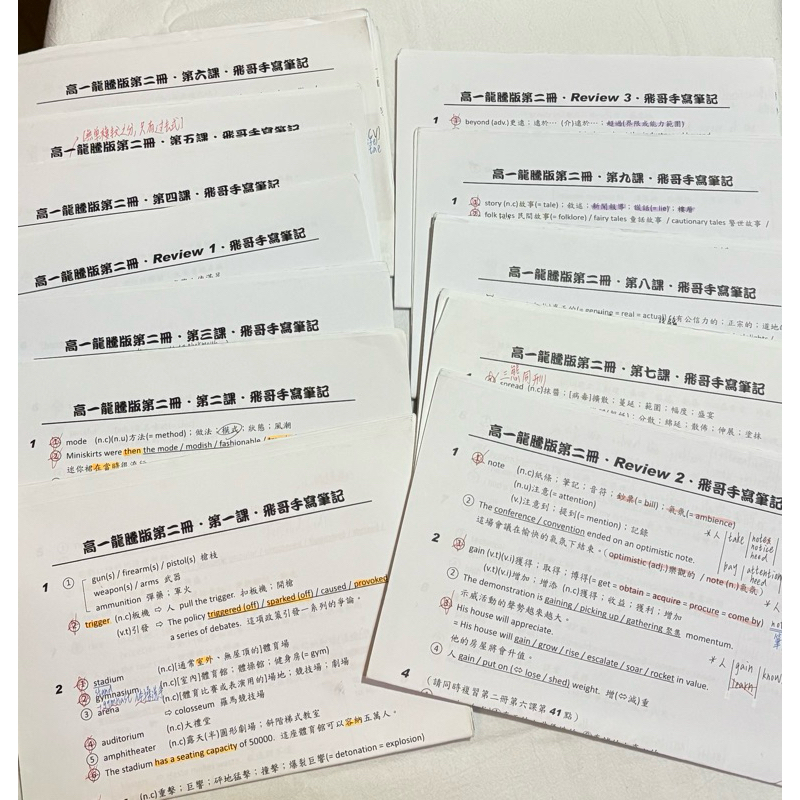 高一龍騰版第二冊・第六課・飛哥手寫筆記
高一龍騰版第二冊・第五課・飛哥手寫筆記
高一龍騰版第二冊・第四課・飛哥手寫筆記
高一龍騰版第二冊・Review 1・飛哥手寫筆記
高一龍騰版第二冊・第三課・飛哥手寫筆記
高一龍騰版第二冊・第二課・飛哥手寫筆記
1 ① mode (n.c)(n.u)方法(= method)；做法；模式；狀態；風潮
② Miniskirts were then the mode / modish / fashionable /
迷你裙在當時很流行
高一龍騰版第二冊・第一課・飛哥手寫筆記
1 ① gun(s) / firearm(s) / pistol(s) 槍枝
weapon(s) / arms 武器
ammunition 彈藥；軍火
② trigger (n.c)板機 ⇨ 人 pull the trigger. 扣板機；開槍
(v.t)引發 ⇨ The policy triggered (off) / sparked (off) / caused / provoked
a series of debates. 這項政策引發一系列的爭論。
2 ① stadium (n.c)[通常室外、無屋頂的]體育場
② gymnasium (n.c)[室內]體育館；體操館；健身房(= gym)
③ arena (n.c)[體育比賽或表演用的]場地；競技場；劇場
⇨ colosseum 羅馬競技場
④ auditorium (n.c)大禮堂
⑤ amphitheater (n.c)露天(半)圓形劇場；斜階梯式教室
⑥ The stadium has a seating capacity of 50000. 這座體育館可以容納五萬人。
(n.c)重擊；巨響；砰地猛擊；撞擊；爆裂巨響(= detonation = explosion)
高一龍騰版第二冊・Review 3・飛哥手寫筆記
1 ① beyond (adv.)更遠；遠於… (介)遠於…；超過(界限或能力範圍)
高一龍騰版第二冊・第九課・飛哥手寫筆記
1 ① story (n.c)故事(= tale)；敘述；新聞報導；謊話(= lie)；樓層
② folk tales 民間故事(= folklore) / fairy tales 童話故事 / cautionary tales 警世故事 /
高一龍騰版第二冊・第八課・飛哥手寫筆記
(= genuine = real = actual)；有公信力的；正宗的；道地
高一龍騰版第二冊・第七課・飛哥手寫筆記
三態同形
spread (n.c)抹醬；[病毒]擴散；蔓延；範圍；幅度；盛宴
分散；綿延；散佈；伸展；塗抹
高一龍騰版第二冊・Review 2・飛哥手寫筆記
1 ① note (n.c)紙條；筆記；音符；鈔票(= bill)；氣氛(= ambience)
(n.u)注意(= attention)
(v.)注意到；提到(= mention)；記錄
② The conference / convention ended on an optimistic note.
這場會議在愉快的氣氛下結束。( optimistic (adj.)樂觀的 / note (n.)氣氛)
人 take notes notice heed
pay attention heed
2 ① gain (v.t)(v.i)獲得；取得；博得(= get = obtain = acquire = procure = come by)
(v.t)(v.i)增加；增添 (n.c)獲得；收益；獲利；增加
② The demonstration is gaining / picking up / gathering 聚集 momentum.
示威活動的聲勢越來越大。
③ His house will appreciate.
= His house will gain / grow / rise / escalate / soar / rocket in value.
他的房屋將會升值。
④ 人 gain / put on (⇔ lose / shed) weight. 增(⇔減)重
人 gain learn know
4 (請同時複習第二冊第六課第 41 點)